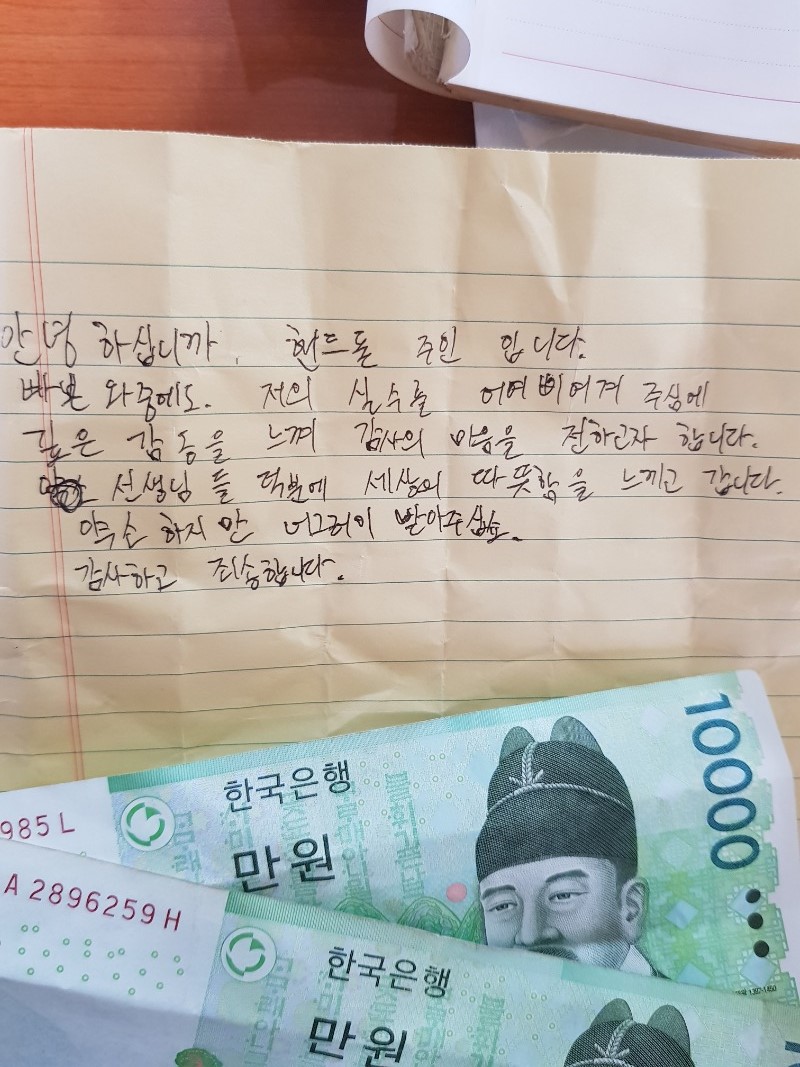 안녕 하십니까. 핸드폰 주인 입니다.
빠쁜 와중에도. 저의 실수를 어여삐여겨 주심에
깊은 감동을 느껴 감사의 마음을 전하고자 합니다.
선생님들 덕분에 세상의 따뜻함을 느끼고 갑니다.
약소하지만 너그러이 받아주십쇼.
감사하고 죄송합니다.
985 L
한국은행
만원
10000
A 2896259 H
한국은행
만원